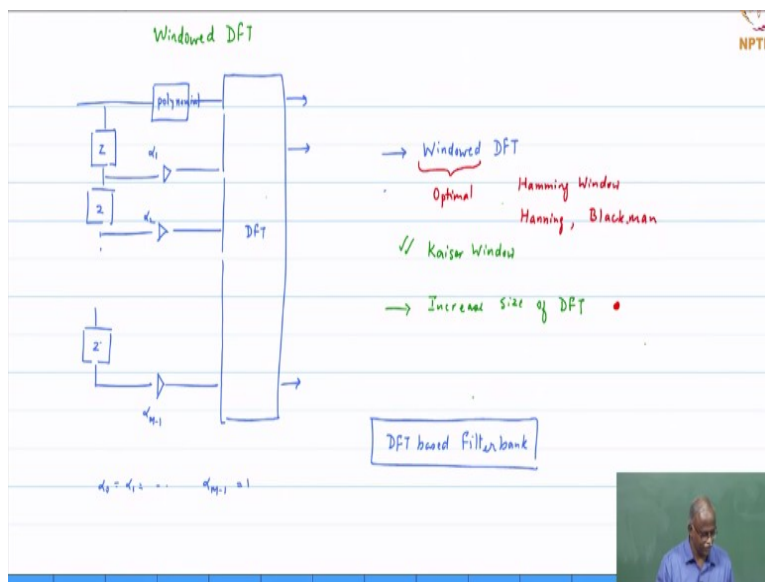 Windowed DFT
NPTE
polynomial
Z
α₁
Z
α₂
DFT
Z
α_{M-1}
α₀ = α₁ = ... α_{M-1} = 1
→ Windowed DFT
Optimal
Hamming Window
Hanning, Blackman
✓✓ Kaiser Window
→ Increase size of DFT
DFT based Filterbank